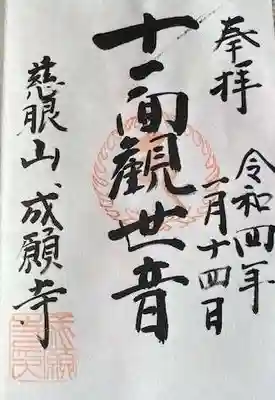 奉拝
令和四年
一月十四日
十一面観世音
慈眼山、成願寺